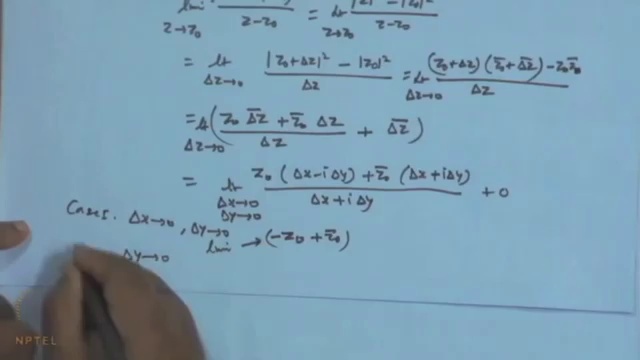 lim z→z₀ z-z₀ = lt z→z₀ |z|² - |z₀|² / z-z₀
= lt Δz→0 |z₀+Δz|² - |z₀|² / Δz = lt Δz→0 (z₀+Δz)(z̄₀+Δ̄z̄) - z₀z̄₀ / Δz
= lt Δz→0 ( z₀ Δ̄z̄ + z̄₀ Δz / Δz + Δ̄z̄ )
= lt Δx→0 Δy→0 z₀(Δx-iΔy) + z̄₀(Δx+iΔy) / Δx+iΔy + 0
Case 1. Δx→0, Δy→0 lim → (-z₀ + z̄₀)
Δy→0
NPTEL